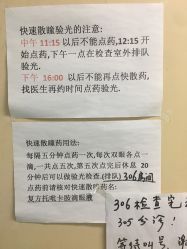 快速散瞳验光的注意:
中午 11:15 以后不能点药,12:15 开
始点药,下午一点在检查室外排队
验光.
下午 16:00 以后不能再点快散药,
找医生再约时间点药验光.
快速散瞳药用法:
每隔五分钟点药一次,每次双眼各点一
滴,一共点五次,第五次点完后休息 20
分钟后可以做验光检查。(排队) 306房间
点药前请核对快速散的药名:
复方托吡卡胺滴眼液
306 检查完
305分诊!
等待叫号